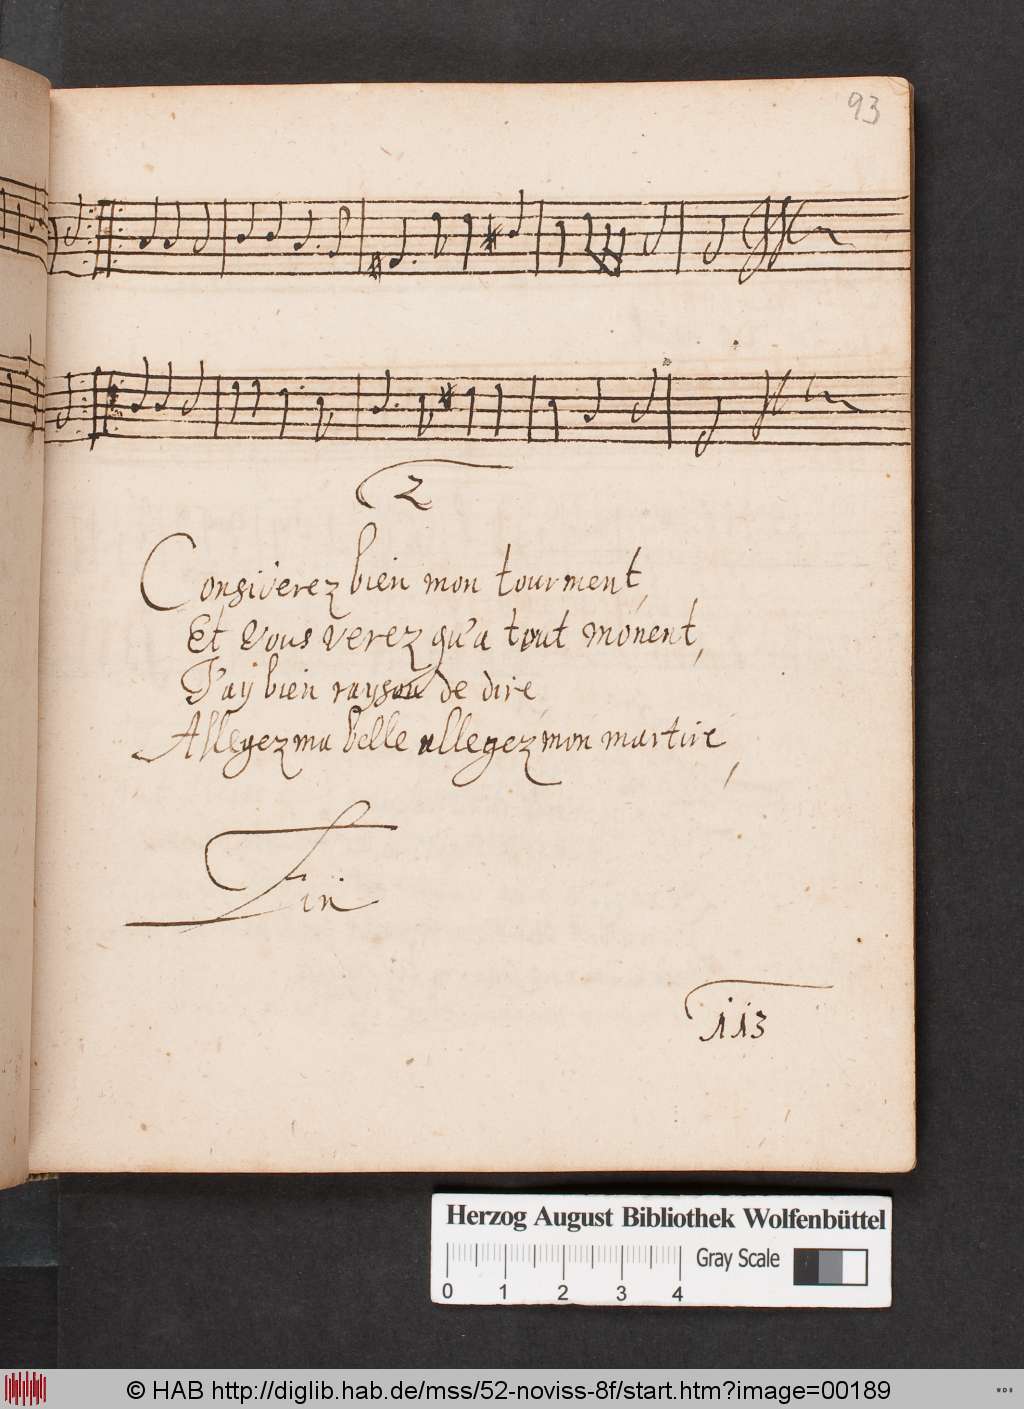 93
2
Considerez bien mon tourment,
Et Vous verez qu'a tout monent,
J'ay bien rayson de dire
Allegez ma belle allegez mon martire,
Fin
113
Herzog August Bibliothek Wolfenbüttel
Gray Scale
0 1 2 3 4
© HAB http://diglib.hab.de/mss/52-noviss-8f/start.htm?image=00189